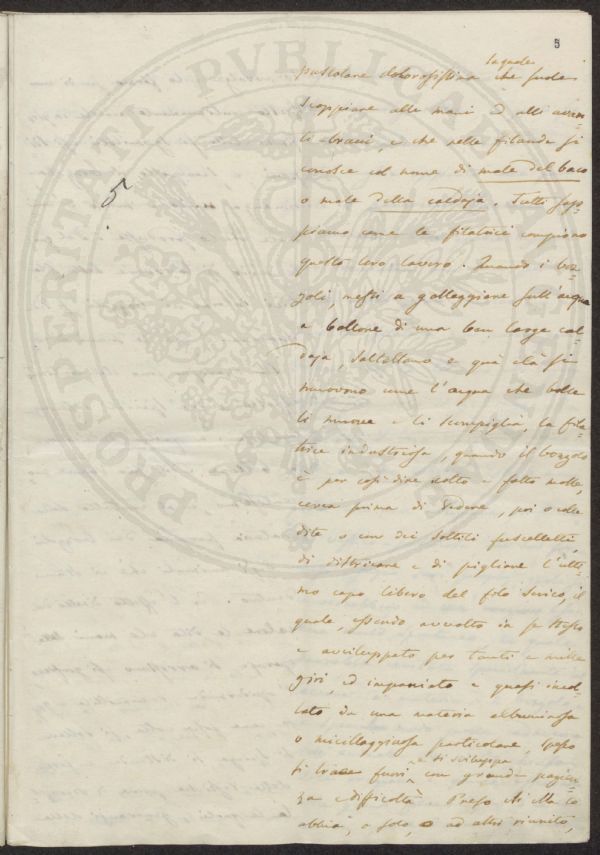 5
la quale
pustolare dolorosissima che suole
scoppiare alle mani ed alli avam-
li bracci, e che nelle filande si
conosce col nome di male del baco
o male della caldaja. Tutti sap-
piamo come le filatrici compiono
questo loro lavoro. Quando i boz-
zoli, messi a galleggiare sull'acqua
a bollore di una ben larga cal-
daja, saltellano e quà e là si
muovono come l'acqua che bolle
li muove e li scompiglia, la fila-
trice industriosa, quando il bozzolo
è per così dire sciolto e fatto molle,
cerca prima di vedere, poi o colle
dita o con dei sottili fuscelletti
di districare e di pigliare l'ulti-
mo capo libero del filo serico, il
quale, essendo avvolto in se stesso
e avviluppato per tanti e mille
giri, ed impaniato e quasi incol-
lato da una materia albuminosa
o mucillagginosa particolare, spesso
e si sviluppa
si trae fuori con grande pazien-
za e difficoltà. Preso ch'ella lo
abbia, o solo, o ad altri riunito,
5
PROSPERITATI PVBLICAE